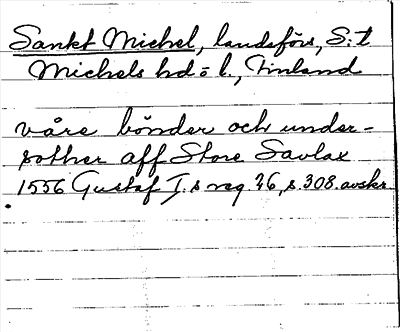 Sankt Michel, landsförs, S:t
Michels hd o l., Finland
våre bönder och under-
såther aff Store Savlax
1556 Gustaf I:s reg. 26, s. 308. avskr.